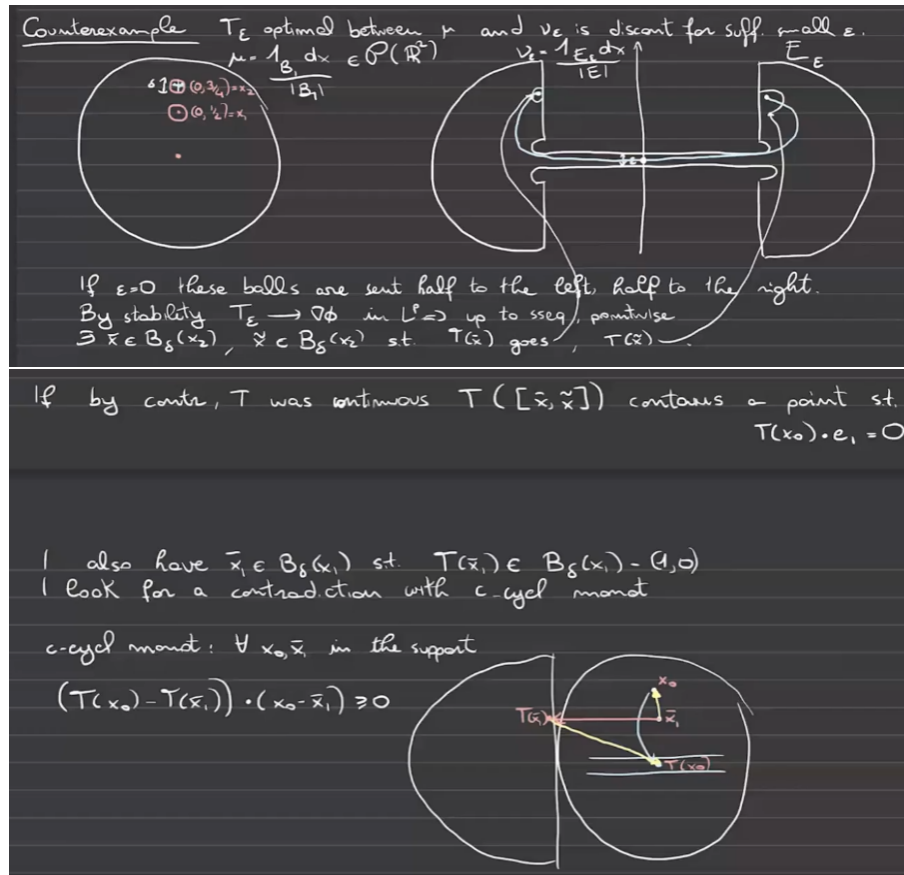 Counterexample T_ε optimal between μ and ν_ε is discont for suff. small ε.
μ = 1_{B_1} dx / |B_1| ∈ P(ℝ²) ν_ε = 1_{E_ε} dx / |E| E_ε
(0, 3/4) = x_2
(0, 1/2) = x_1
If ε=0 these balls are sent half to the left, half to the right.
By stability T_ε → ∇φ in L^p => up to sseq, pointwise
∃ x̄ ∈ B_δ(x_2), x̃ ∈ B_δ(x_2) s.t. T(x̄) goes , T(x̃) .
If by contr, T was continuous T([x̄, x̃]) contains a point s.t.
T(x_0) · e_1 = 0
I also have x̄_1 ∈ B_δ(x_1) s.t. T(x̄_1) ∈ B_δ(x_1) - (1,0)
I look for a contradiction with c-cycl monot
c-cycl monot: ∀ x_0, x̄_1 in the support
(T(x_0) - T(x̄_1)) · (x_0 - x̄_1) ≥ 0
x_0
T(x̄_1) x̄_1
T(x_0)